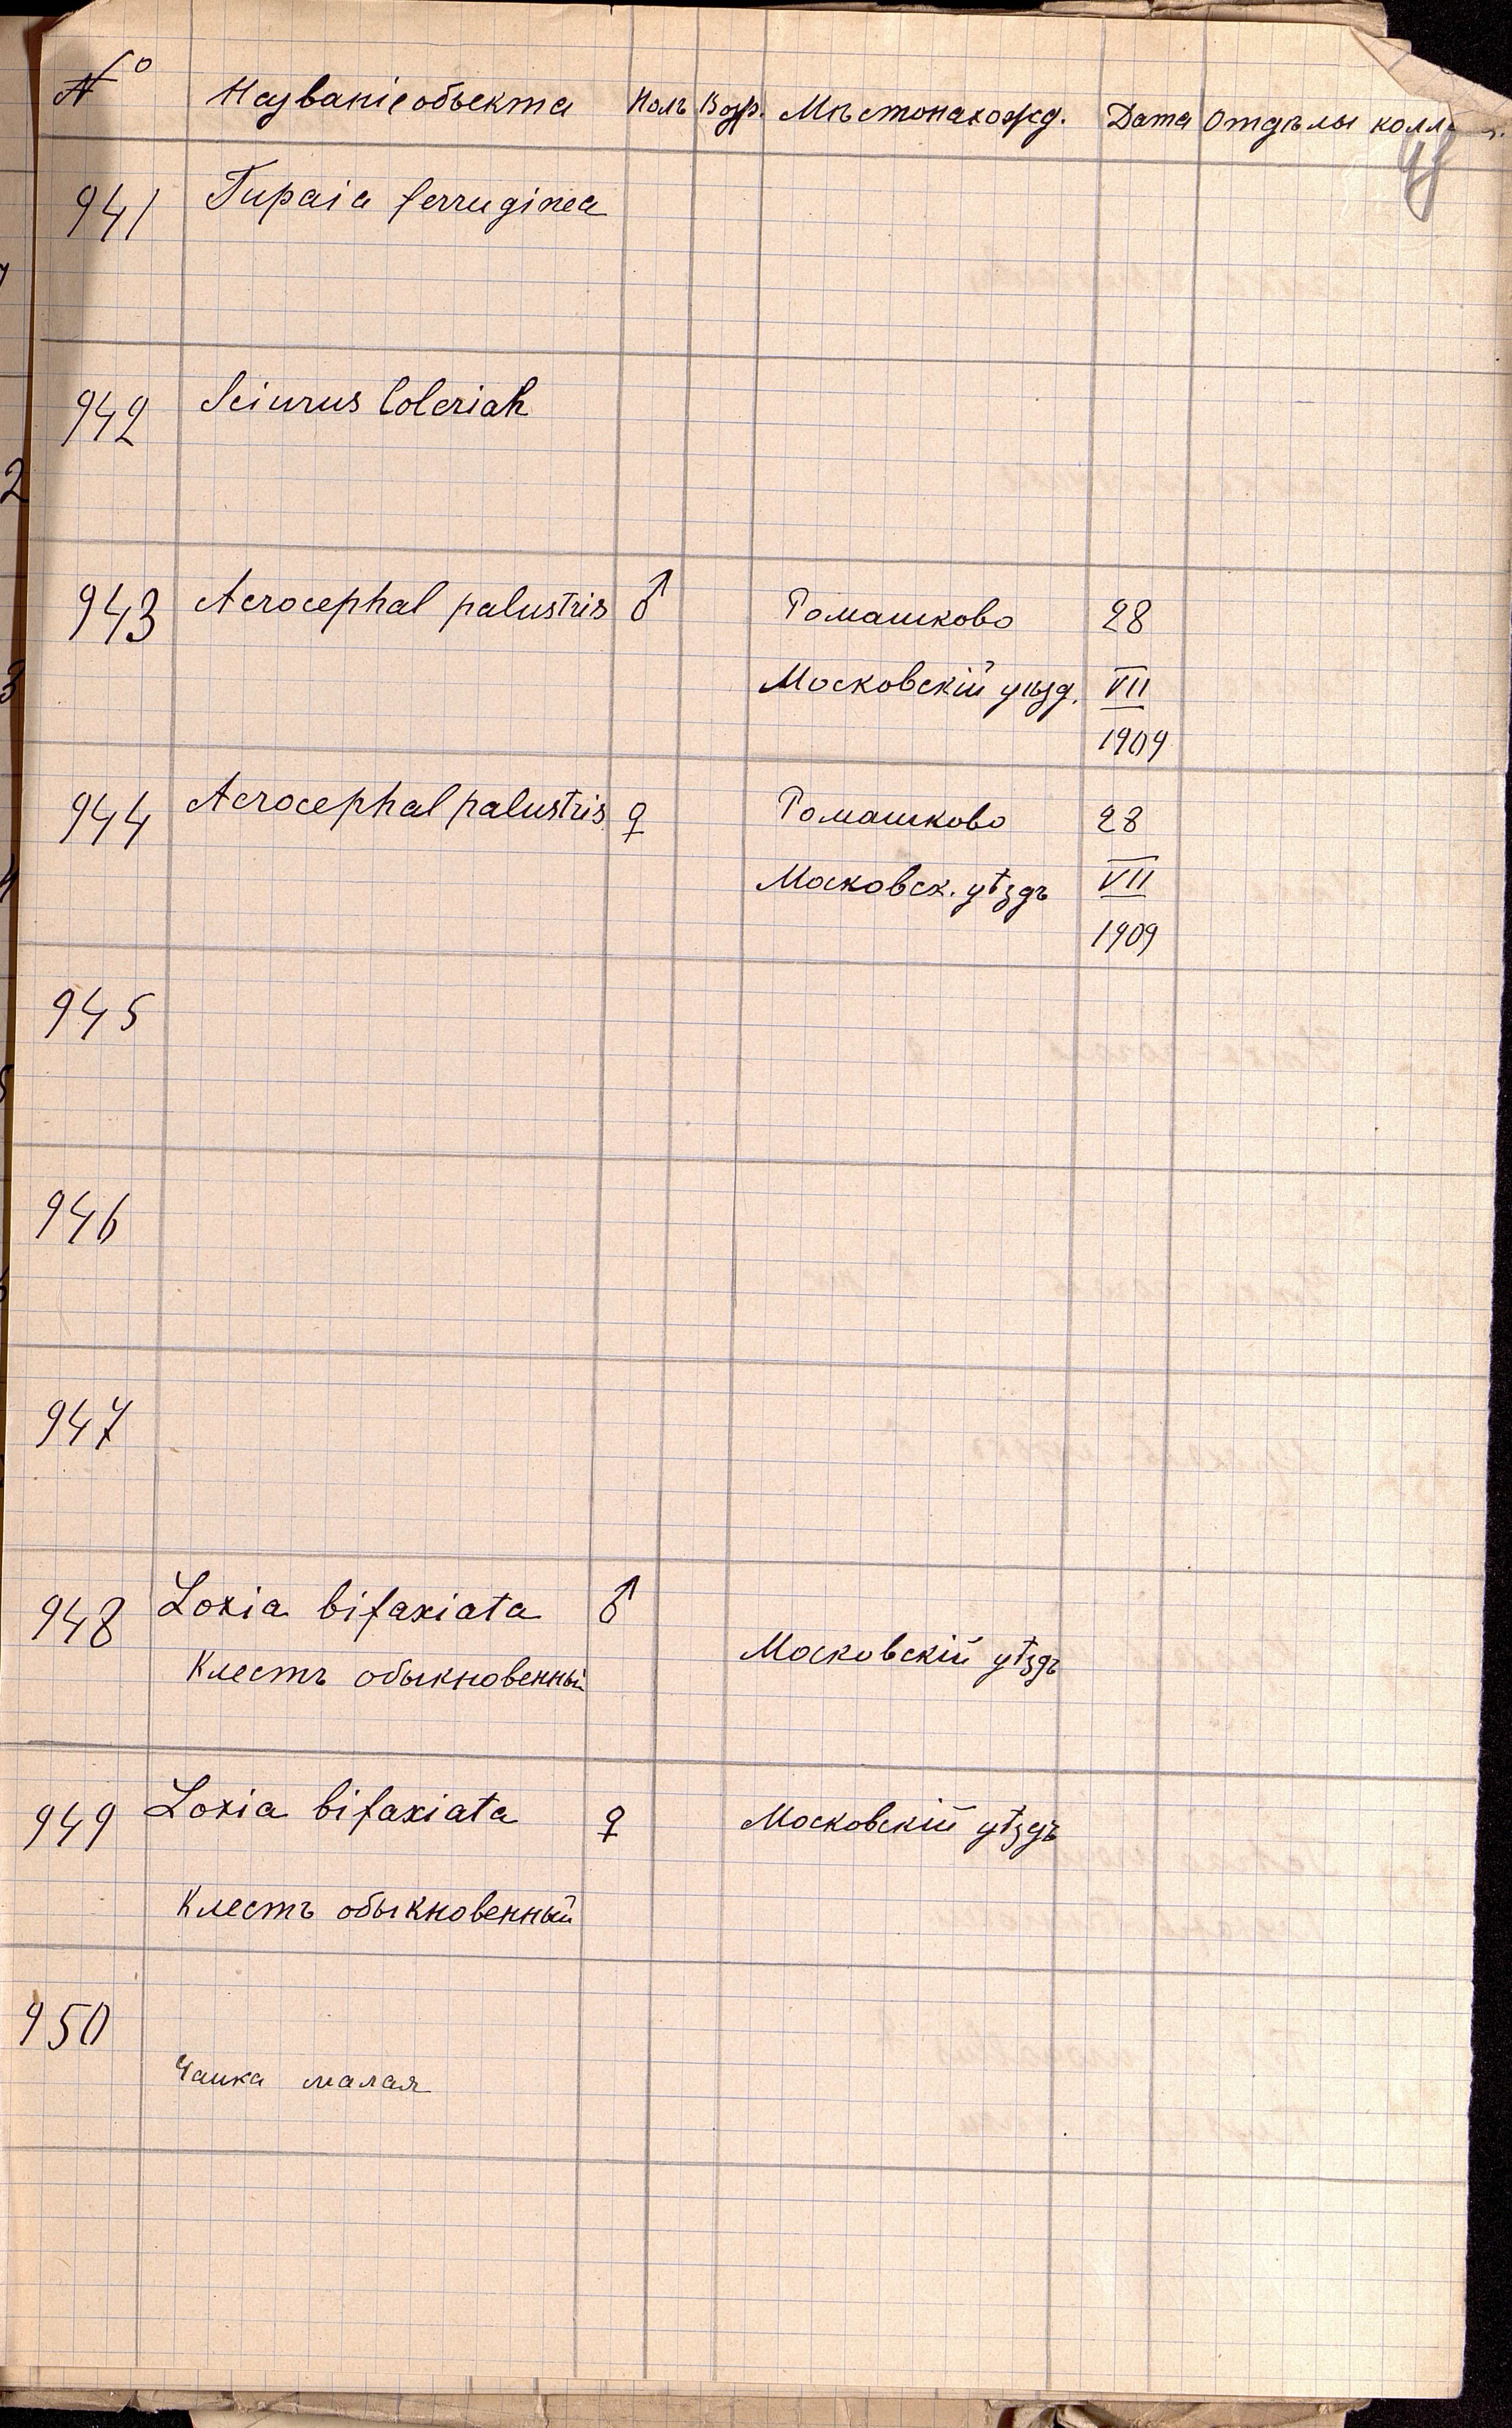 № Названіе объекта Полъ Возр. Мѣстонахожд. Дата Отдѣлы колл
98
941 Tupaia ferruginea
942 Sciurus
943 Acrocephal palustris ♂ Ромашково 28
Московскій уѣзд. VII
1909
944 Acrocephal palustris ♀ Ромашково 28
Московск. уѣздъ VII
1909
945
946
947
948 Loxia bifaxiata ♂
Московскій уѣздъ
Клестъ обыкновенный
949 Loxia bifaxiata ♀ Московскій уѣздъ
Клестъ обыкновенный
950
Чайка малая